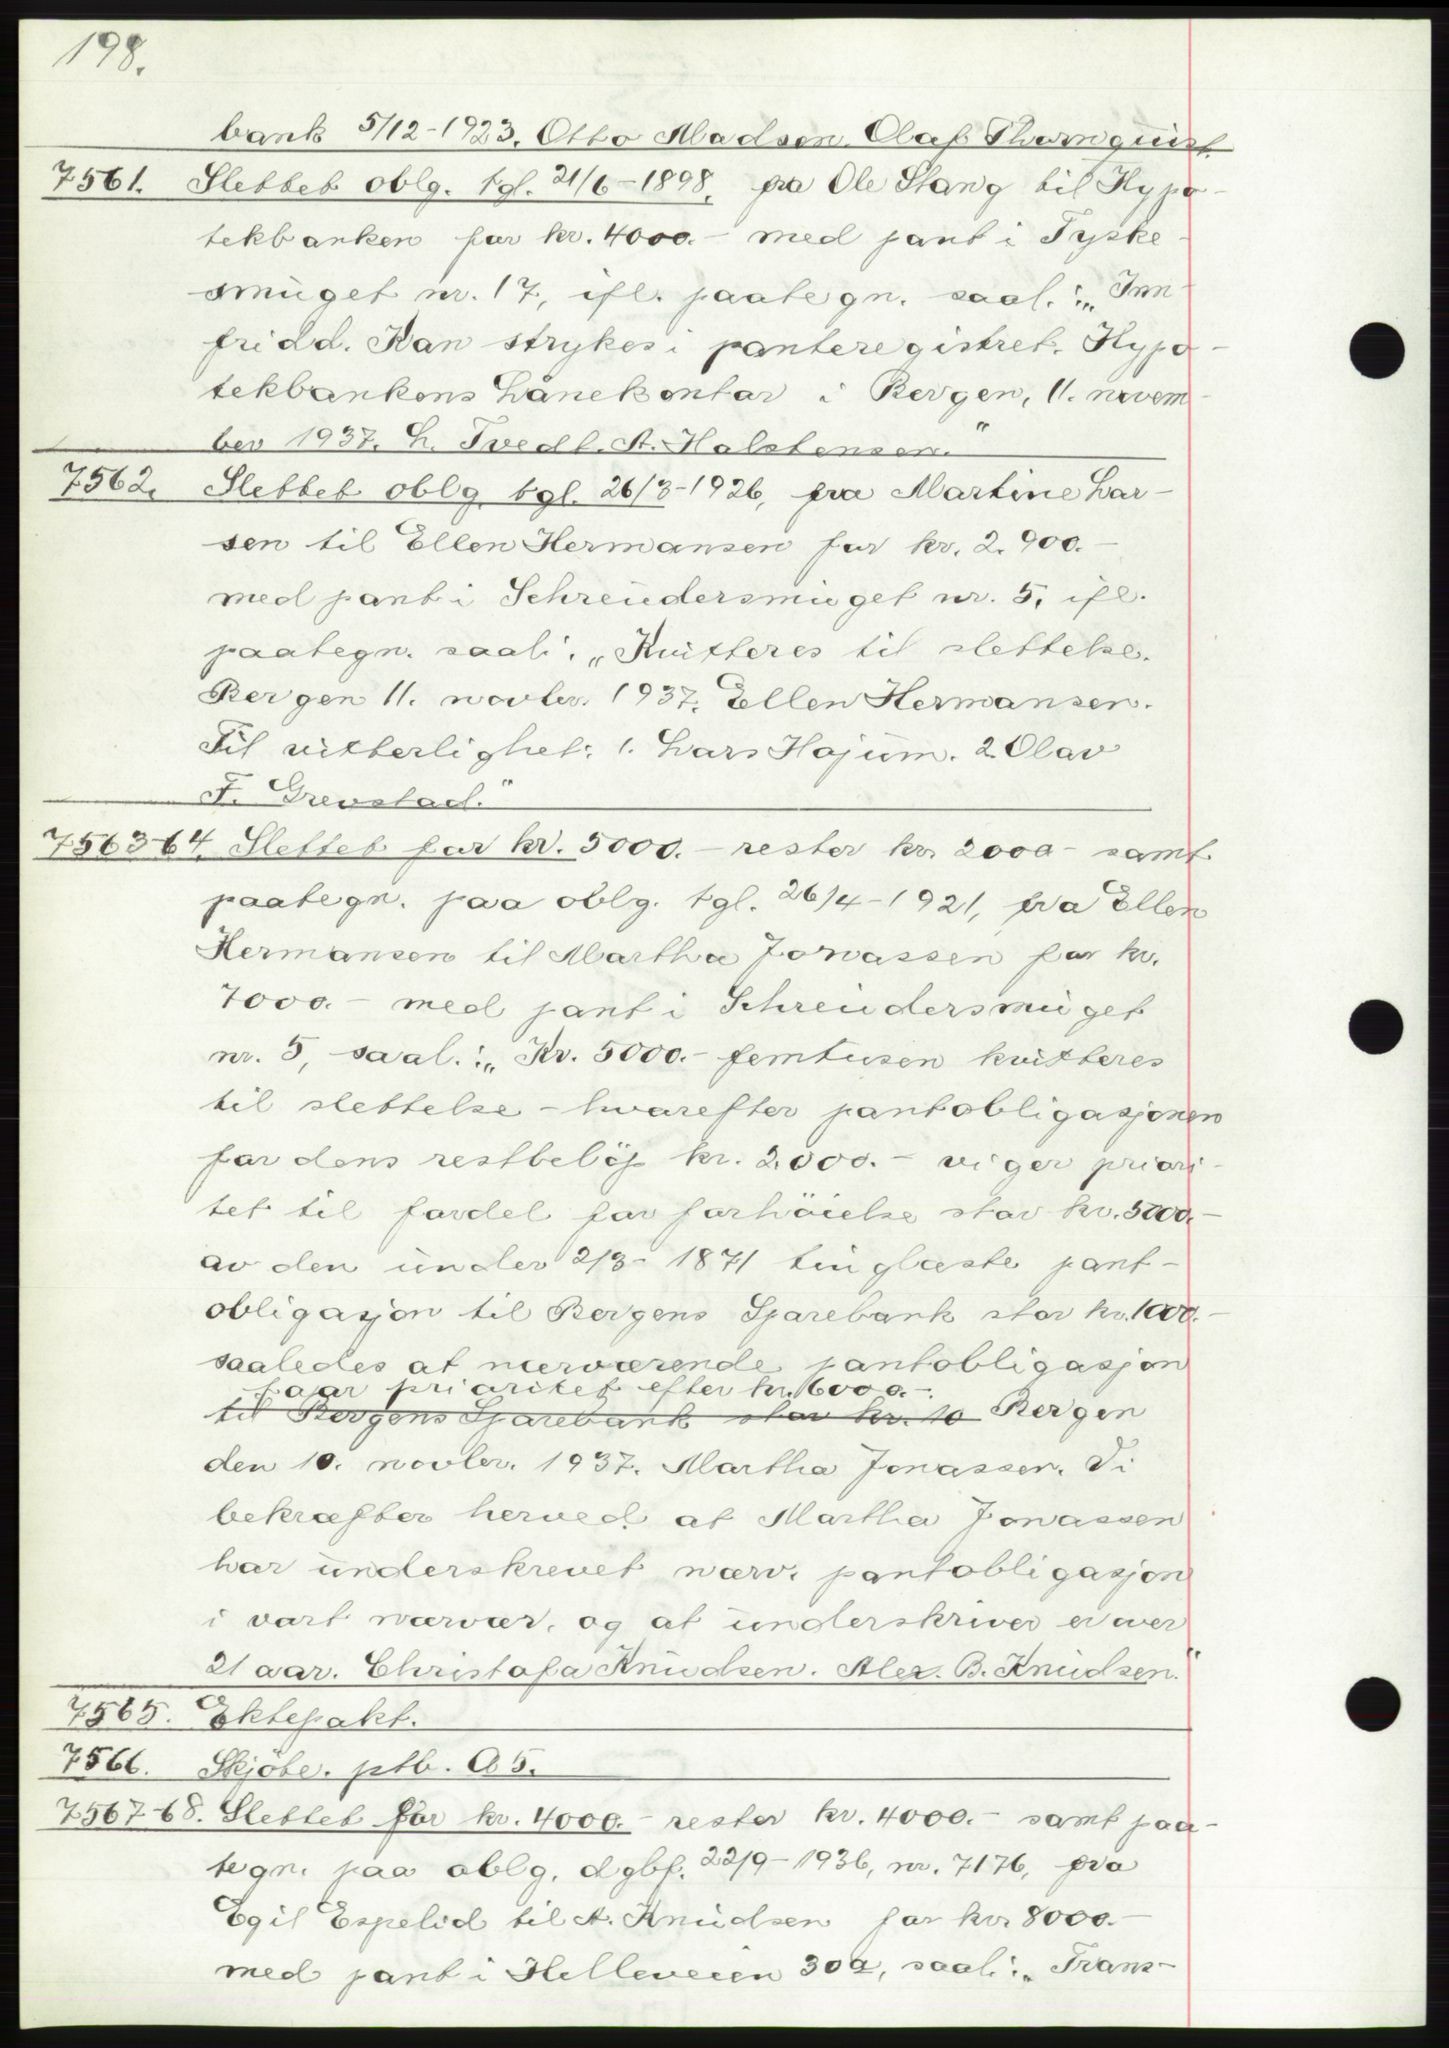 198.
bank 5/12-1923. Otto Madsen. Olaf Thornquist.
7561. Slettet oblg. tgl. 21/6-1898, fra Ole Stang til Hypo-
tekbanken for kr. 4000.- med pant i Tyske-
smuget nr. 17, ifl. paategn. saal.: „Inn-
fridd. Kan strykes i panteregistret. Hypo-
tekbankens Lånekontor i Bergen, 11. novem-
ber 1937. L. Tvedt. A. Halstensen."
7562. Slettet oblg. tgl. 26/3-1926, fra Martine Lar-
sen til Ellen Hermansen for kr. 2.900.-
med pant i Schreudersmuget nr. 5, ifl.
paategn. saal.: „Kvitteres til slettelse.
Bergen 11. novbr. 1937. Ellen Hermansen.
Til vitterlighet: 1. Lars Hojum. 2. Olav
F. Grevstad."
7563-64. Slettet for kr. 5000.- rester kr. 2000- samt
paategn. paa oblg. tgl. 26/4-1921, fra Ellen
Hermansen til Martha Jonassen for kr.
7000.- med pant i Schreudersmuget
nr. 5, saal.: „Kr. 5000.- femtusen kvitteres
til slettelse - hvorefter pantobligasjonen
for dens restbeløp kr. 2.000.- viger priori-
tet til fordel for forhöielse stor kr. 5000.-
av den under 2/3- 1871 tinglæste pant-
obligasjon til Bergens Sparebank stor kr. 1000.-
saaledes at nærværende pantobligasjon
faar prioritet efter kr. 6000.-.
til Bergens Sparebank stor kr. 10 Bergen
den 10. novbr. 1937. Martha Jonassen. Vi
bekræfter herved at Martha Jonassen
har underskrevet nærv. pantobligasjon
i vort nærvær, og at underskriver er over
21 aar. Christofa Knudsen. Alex. B. Knudsen."
7565. Ektepakt.
7566. Skjöte. ptb. A 5.
7567-68. Slettet for kr. 4000.- rester kr. 4000.- samt paa-
tegn. paa oblg. dgbf. 22/9-1936, nr. 7176, fra
Egil Espelid til A. Knudsen for kr. 8000.-
med pant i Helleveien 30a, saal.: „Trans-